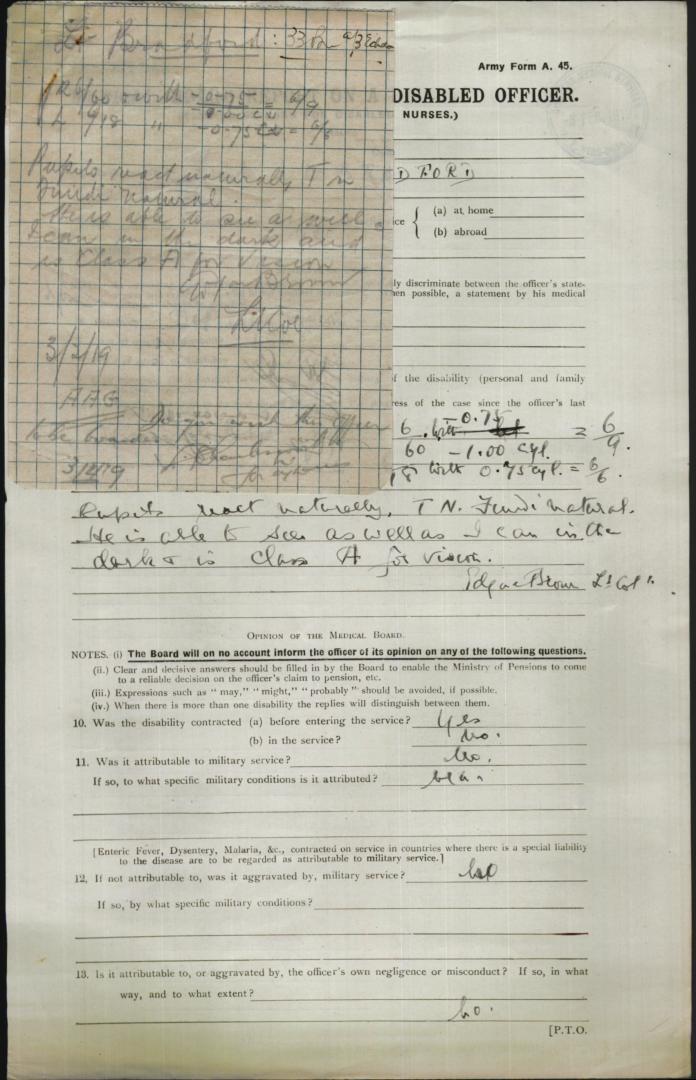 Lt Bradford : 33 Bn a/3 Echelon
R 6/60 with -0.75 / -1.00 cyl = 6/9
L 6/18 " -0.75 cyl = 6/6
Pupils react naturally T n
Fundi natural.
He is able to see as well as
I can in the dark and
is Class A for vision
Brown
Lt Col
3/2/19
AAG
Do you wish this officer
to be boarded
Army Form A. 45.
DISABLED OFFICER.
NURSES.)
DFORD
ice { (a) at home
(b) abroad
ly discriminate between the officer's state-
en possible, a statement by his medical
f the disability (personal and family
ress of the case since the officer's last
6/60 with -0.75 / -1.00 cyl. = 6/9.
18 with 0.75 cyl. = 6/6.
Pupils react naturally, T N. Fundi natural.
He is able to see as well as I can in the
dark & is Class A for vision.
Edgar Brown Lt Col.
OPINION OF THE MEDICAL BOARD.
NOTES. (i) The Board will on no account inform the officer of its opinion on any of the following questions.
(ii.) Clear and decisive answers should be filled in by the Board to enable the Ministry of Pensions to come
to a reliable decision on the officer's claim to pension, etc.
(iii.) Expressions such as "may," "might," "probably" should be avoided, if possible.
(iv.) When there is more than one disability the replies will distinguish between them.
10. Was the disability contracted (a) before entering the service? Yes
(b) in the service? No.
11. Was it attributable to military service? No.
If so, to what specific military conditions is it attributed?
[Enteric Fever, Dysentery, Malaria, &c., contracted on service in countries where there is a special liability
to the disease are to be regarded as attributable to military service.]
12. If not attributable to, was it aggravated by, military service? No
If so, by what specific military conditions?
13. Is it attributable to, or aggravated by, the officer's own negligence or misconduct? If so, in what
way, and to what extent?
No.
[P.T.O.